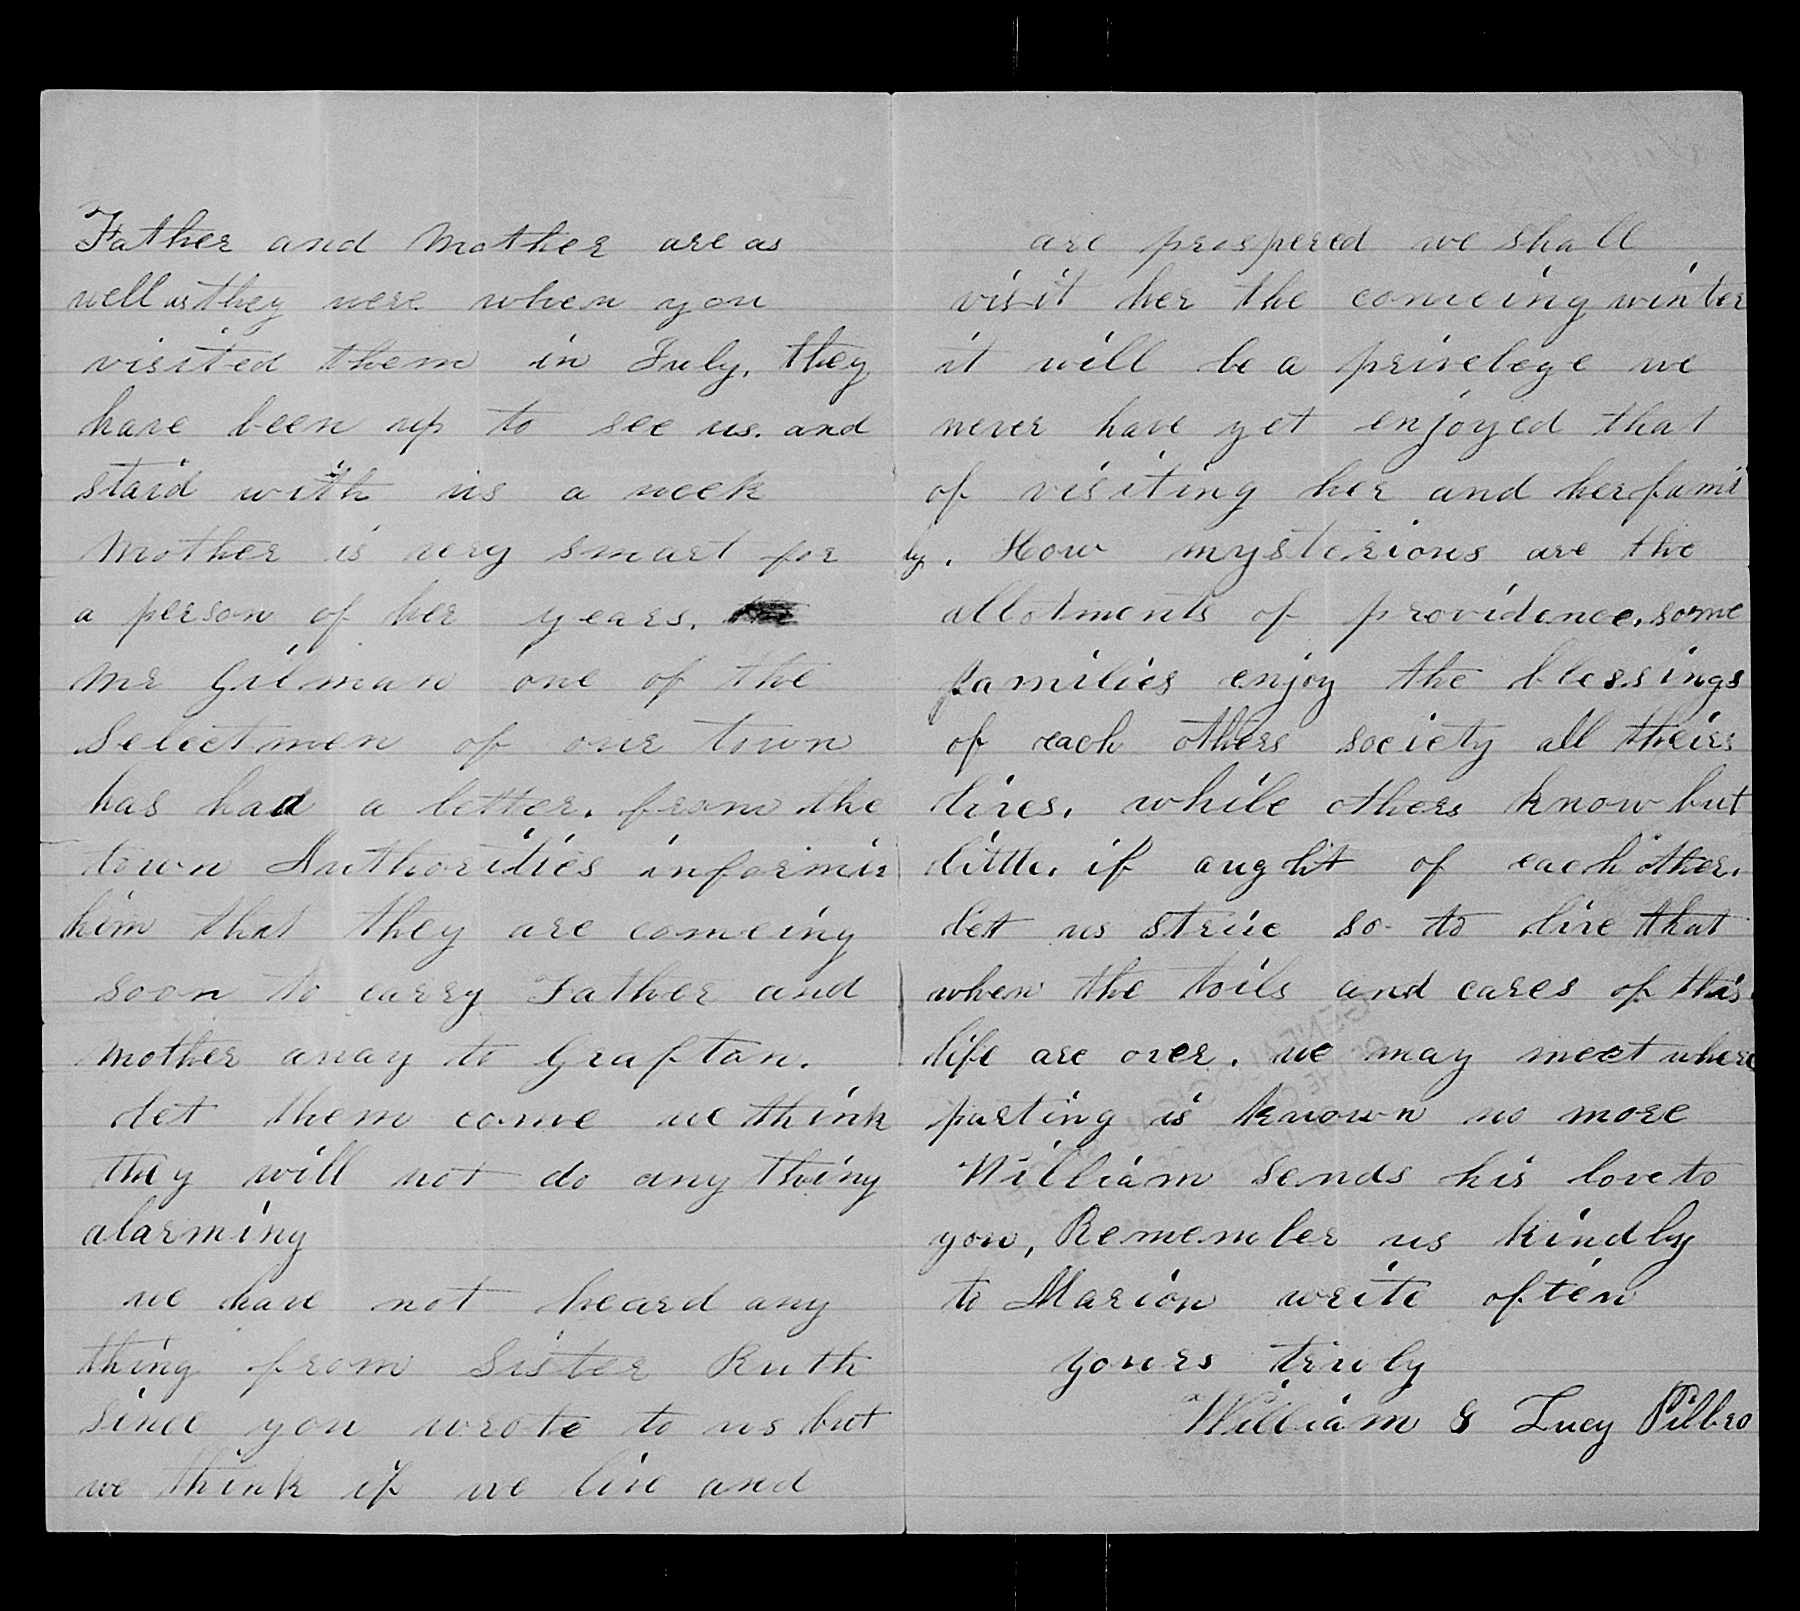 Father and Mother are as
well as they were when you
visited them in July, they
have been up to see us. and
staid with us a week
Mother is very smart for
a person of her years.
Mr Gilman one of the
Selectmen of our town
has had a letter. from the
town Authorities informin
him that they are comeing
soon to carry Father and
Mother away to Grafton.
let them come we think
they will not do any thing
alarming
we have not heard any
thing from Sister Ruth
since you wrote to us but
we think if we live and
are prospered we shall
visit her the comeing winter
it will be a privelege we
never have yet enjoyed that
of visiting her and her fami
ly. How mysterious are the
allotments of providence, some
families enjoy the blessings
of each others society all theirs
lives, while others know but
little, if aught of each other.
let us strive so to live that
when the toils and cares of this
life are over. we may meet where
parting is known no more
William sends his love to
you, Remember us kindly
to Marion write often
yours truly
William & Lucy Pilbro